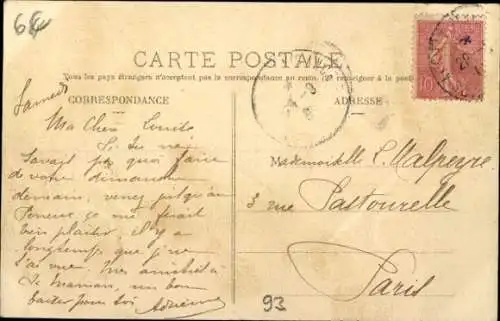 6f
CARTE POSTALE
Tous les pays étrangers n'acceptent pas la correspondance au recto. (Se renseigner à la poste)
CORRESPONDANCE
ADRESSE
10
Samedi
Ma Chère Louise
Si tu n'ai
Savait pas quoi faire
de votre dimanche
demain, venez jusqu'au
ça me ferait
bien plaisir. Il y a
longtemps que j'ne
t'ai vue. Mes amitiés à
ta Maman, un bon
baiser pour toi
Adrienne
Mademoiselle L. Malpeyre
3 rue Pastourelle
Paris
93